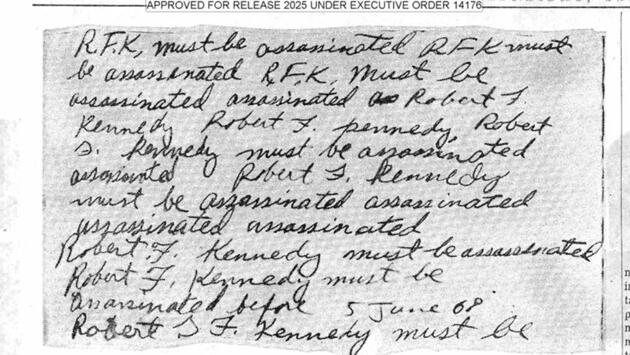 APPROVED FOR RELEASE 2025 UNDER EXECUTIVE ORDER 14176
R.F.K, must be assassinated R F K must
be assassinated R.F.K. must be
assassinated assassinated Robert F.
Kennedy Robert F. pennedy, Robert
F. Kennedy must be assassinated
assassinated Robert F. Kennedy
must be assassinated assassinated
assassinated assassinated
Robert F. Kennedy must be assassinated
Robert F, Kennedy must be
assassinated before 5 June 68
Robert F. Kennedy must be